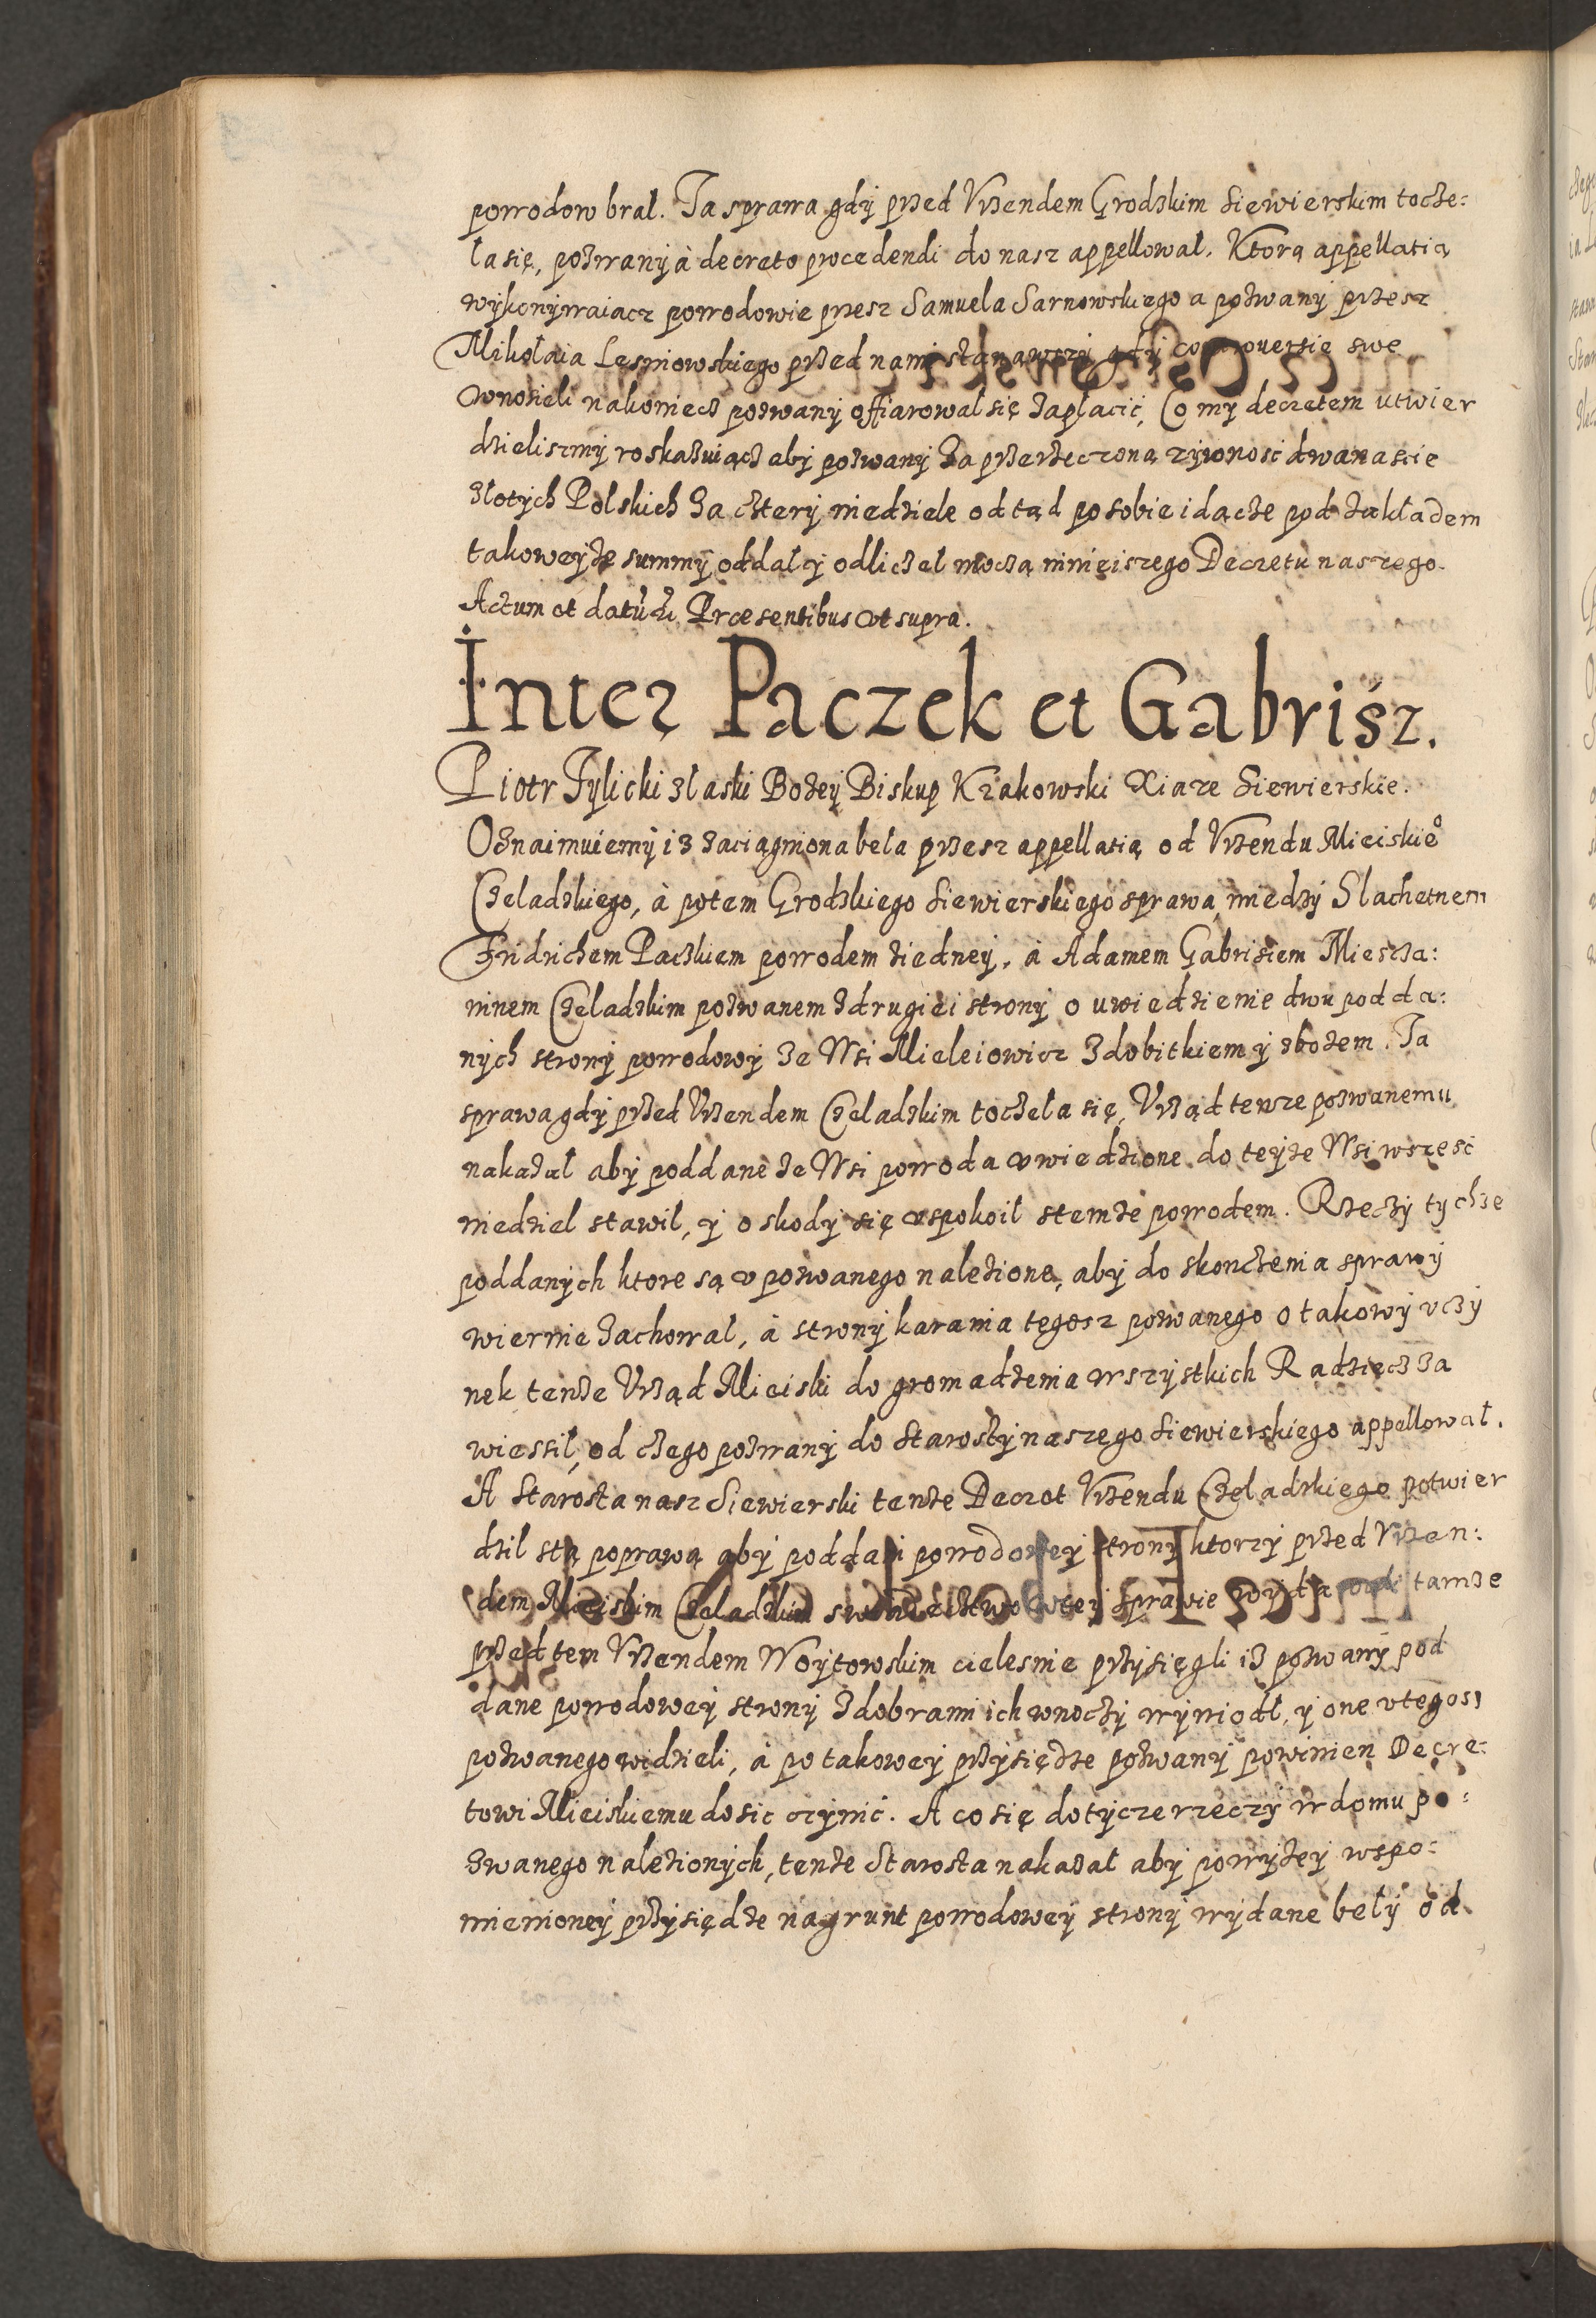 powodow brał. Ta sprawa gdy przed Vrzendem Grodzkim Siewierskim tocze:
la się, pozwany à decreto procedendi do nasz appellował. Ktorą appellatią
wykonywaiacz powodowie przesz Samuela Sarnowskiego a pozwany przesz
Mikołaia Lesniowskiego przed nami stanąwszy gdy controuersie swe
wnosieli nakoniecz pozwany offiarował się zapłacić, Co my decretem utwier
dzieliszmy roskazuiącz aby pozwany za przerzeczoną zywnosć dwanascie
złotych Polskich za cztery niedziele od tąd po sobie idącze pod zakładem
takoweyze summy oddał y odliczel moczą ninieiszego Decretu naszego.
Actum et datum. Præsentibus vt supra.
Inter Paczek et Gabrisz.
Piotr Tylicki z laski Bozey Biskup Krakowski Xiaze Siewierskie.
Oznaimuiemy iz zaciągniona beła przesz appellatią od Vrzendu Mieiskie°
Czeladzkiego, à potem Grodzkiego Siewierskiego sprawa, miedzy Slachetnem
Fridrichem Paczkiem powodem ziedney, à Adamem Gabrisiem Miescza:
ninem Czeladzkim pozwanem z drugiei strony o uwiedzienie dwu podda:
nych strony powodowy ze Wsi Mieleiowicz z dobitkiem y zbozem. Ta
sprawa gdy przed Vrzendem Czeladzkim toczela się, Vrząd tenze pozwanemu
nakazał aby poddane ze Wsi powoda vwiedzione do teyze Wsi w szesć
niedziel stawił, y o skody się vspokoił stemze powodem. Rzeczy tychze
poddanych ktore są v pozwanego nalezione, aby do skonczenia sprawy
wiernie zachował, à strony karania tegosz pozwanego o takowy vczy
nek tenze Vrząd Mieiski do gromadzenia wszystkich Radziecz za
wiessił, od czego pozwany do Starosty naszego Siewierskiego appellował.
A Starosta nasz Siewierski tenze Decret Vrzendu Czeladzkiego potwier
dził stą poprawą aby poddani powodowey strony ktorzy przed Vrzen:
dem Mieiskim Czeladzkim swiadecztwo w tey sprawie tamze
przed tem Vrzendem Woytowskim cielesnie przysięgli iz pozwany pod
dane powodowey strony z dobrami ich w noczy wywiodł, y one v tegosz
pozwanego widzieli, à po takowey przysiędze pozwany powinien Decre:
towi Mieiskiemu dosic czynić. A co się dotycze rzeczy w domu po:
zwanego nalezionych, tenze Starosta nakazał aby powyzey wspo:
mienioney przysiędze na grunt powodowey strony wydane beły od